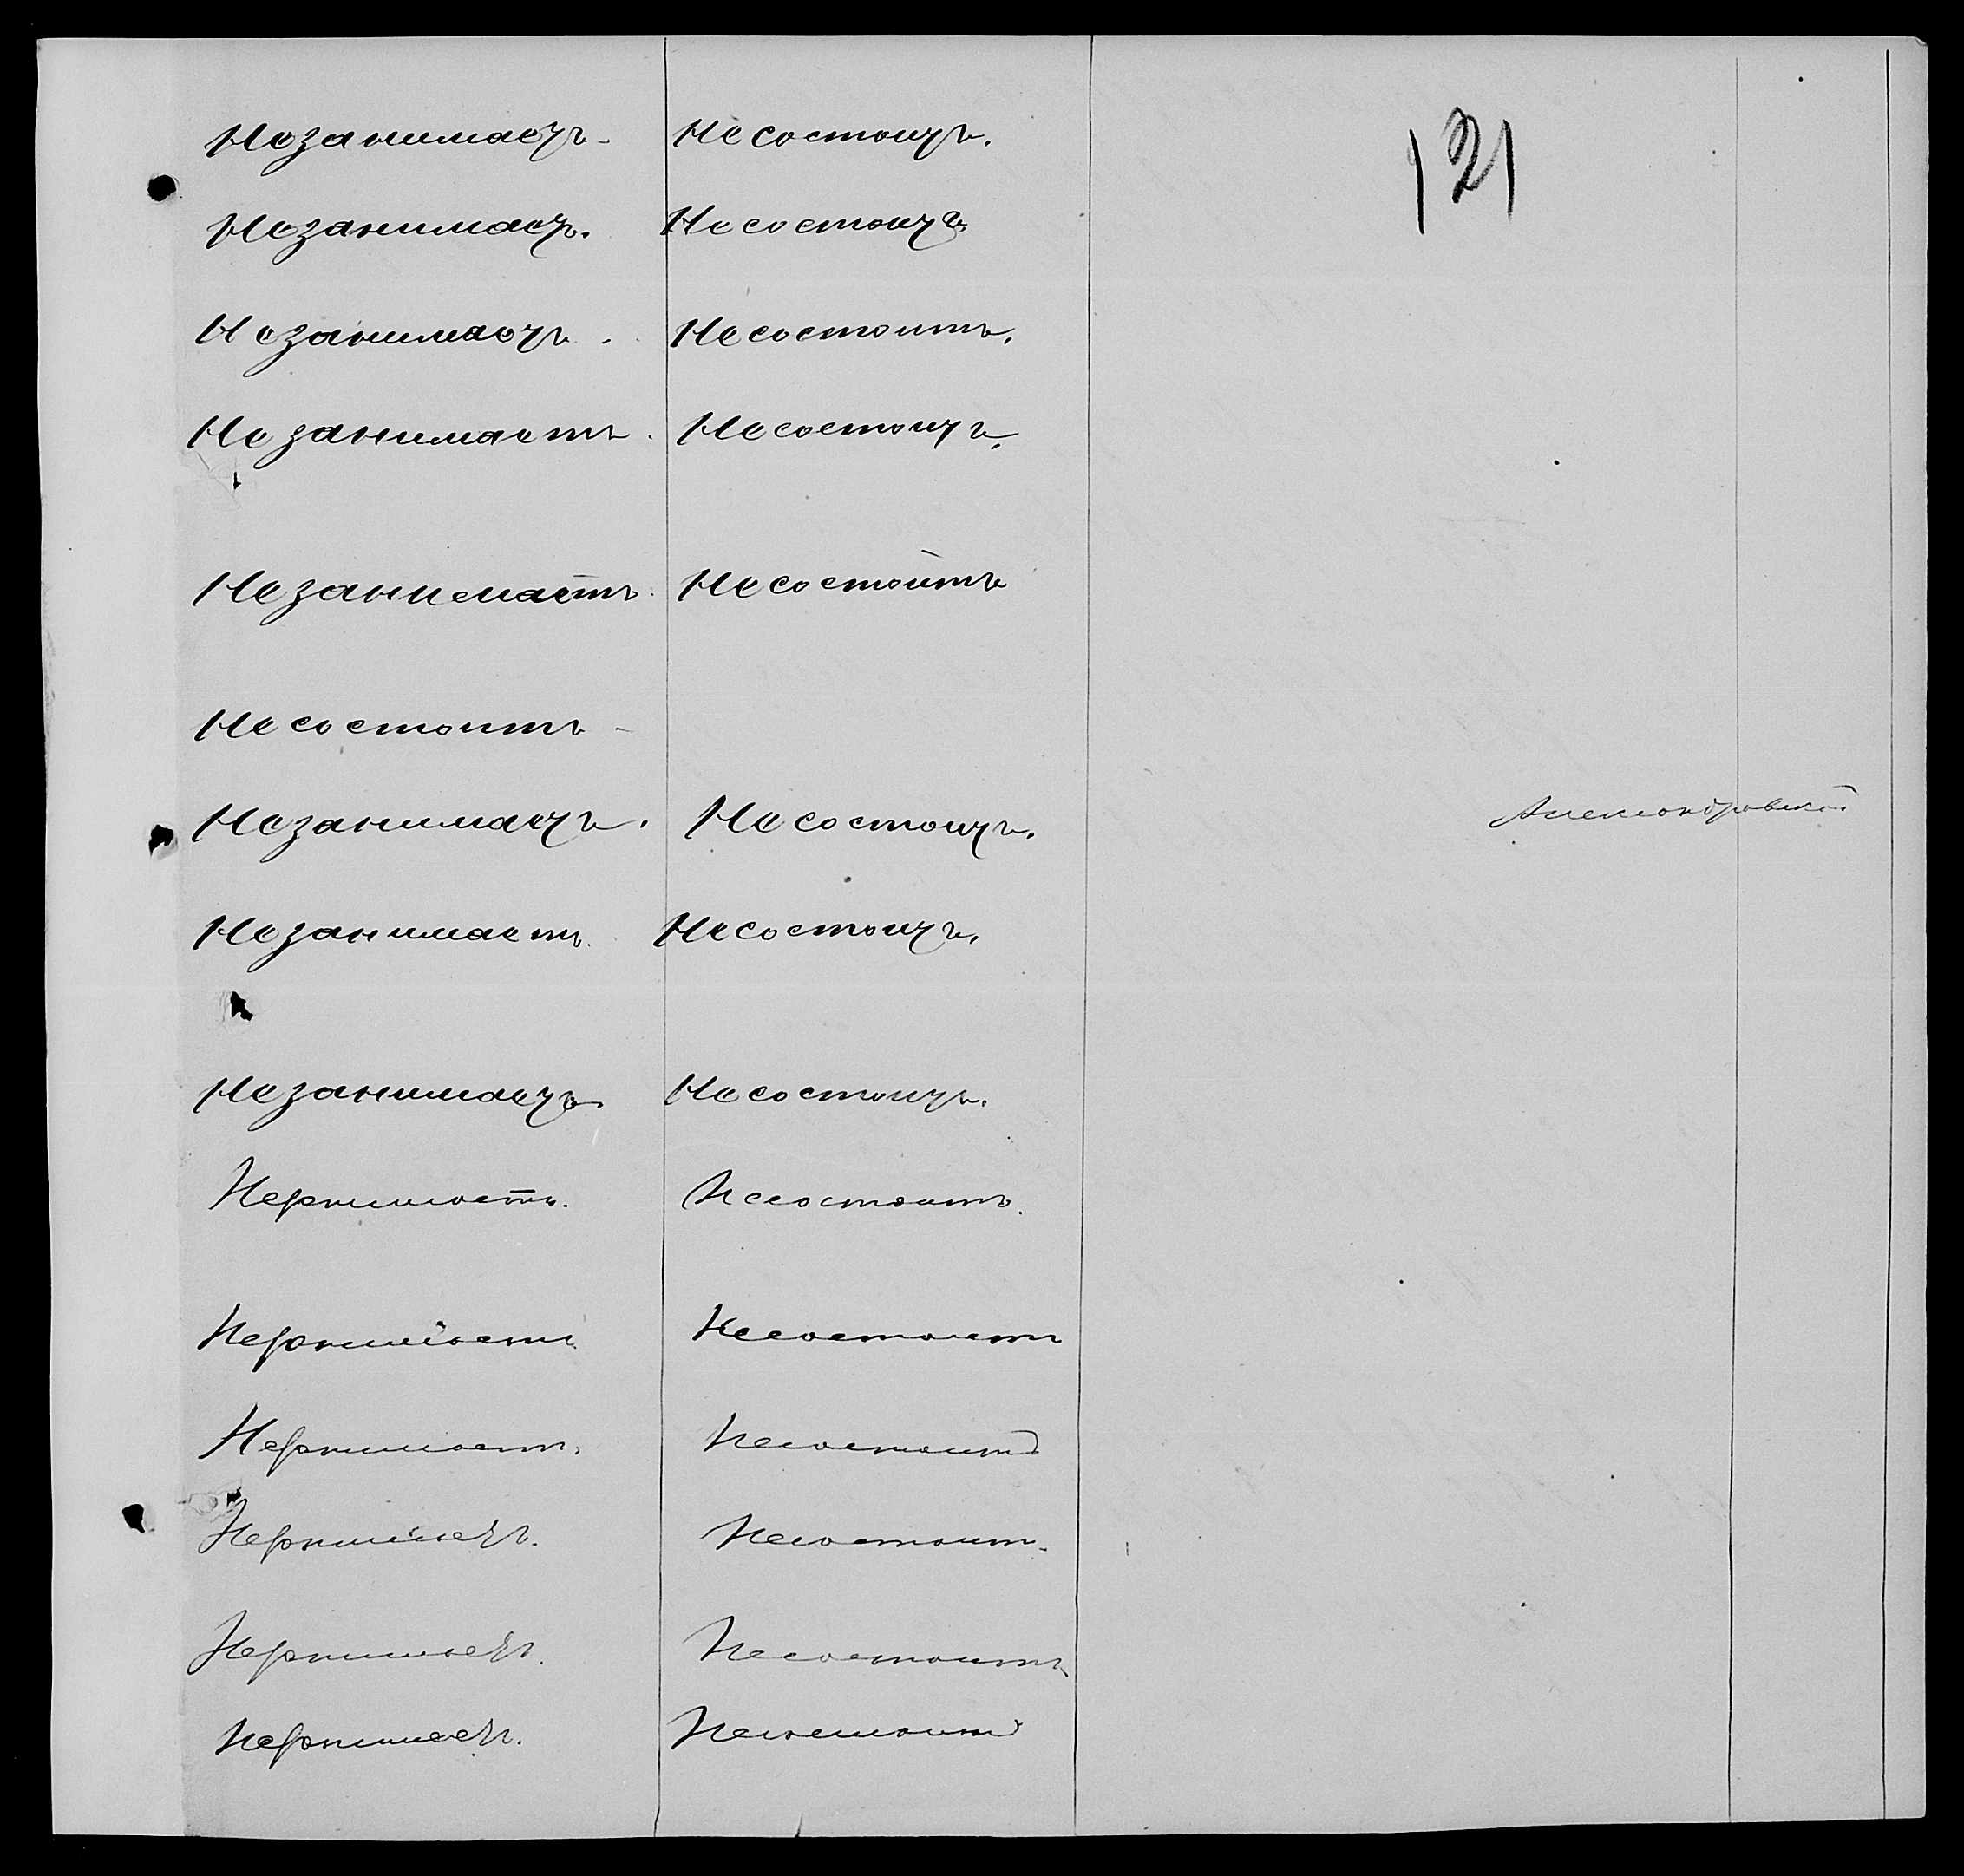 121
Не занимаетъ - Не состоитъ.
Не занимаетъ. Не состоитъ.
Не занимаетъ. Не состоитъ.
Не занимаетъ. Не состоитъ.
Не занимаетъ. Не состоитъ
Не состоитъ -
Не занимаетъ. Не состоитъ. Александровской
Не занимаетъ. Не состоитъ.
Не занимаетъ. Не состоитъ.
Не занимаетъ. Не состоитъ.
Не занимаетъ. Не состоитъ
Не занимаетъ. Не состоитъ
Не занимаетъ. Не состоитъ.
Не занимаетъ. Не состоитъ
Не занимаетъ. Не состоитъ